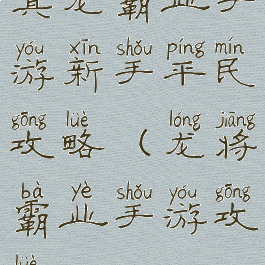 真龙霸业手
yóu xīn shǒu píng mín
游新手平民
gōng lüè lóng jiāng
攻略（龙将
bà yè shǒu yóu gōng
霸业手游攻
lüè